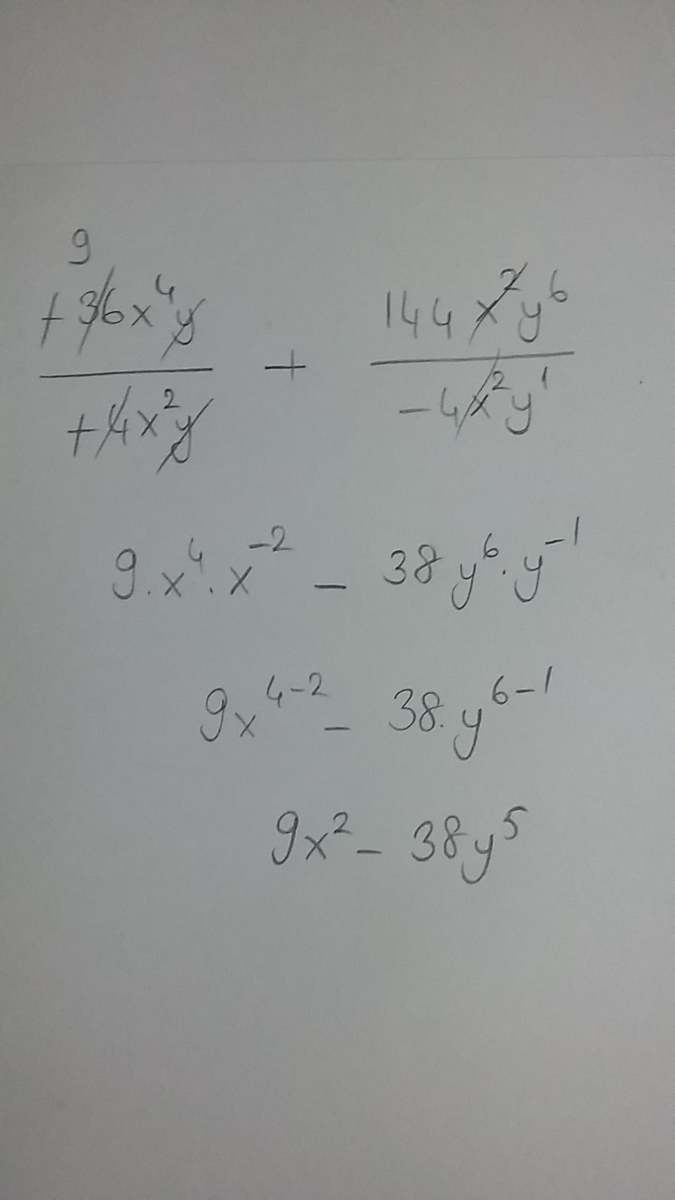 9
+36x⁴y / +4x²y + 144x²y⁶ / -4x²y¹
9.x⁴.x⁻² - 38y⁶.y⁻¹
9x⁴⁻² - 38.y⁶⁻¹
9x² - 38y⁵